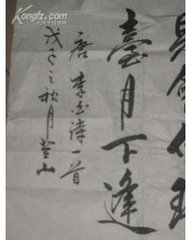 Kongfz.com
見會向瑤
臺月下逢
唐李白詩一首
戊子之秋月
山